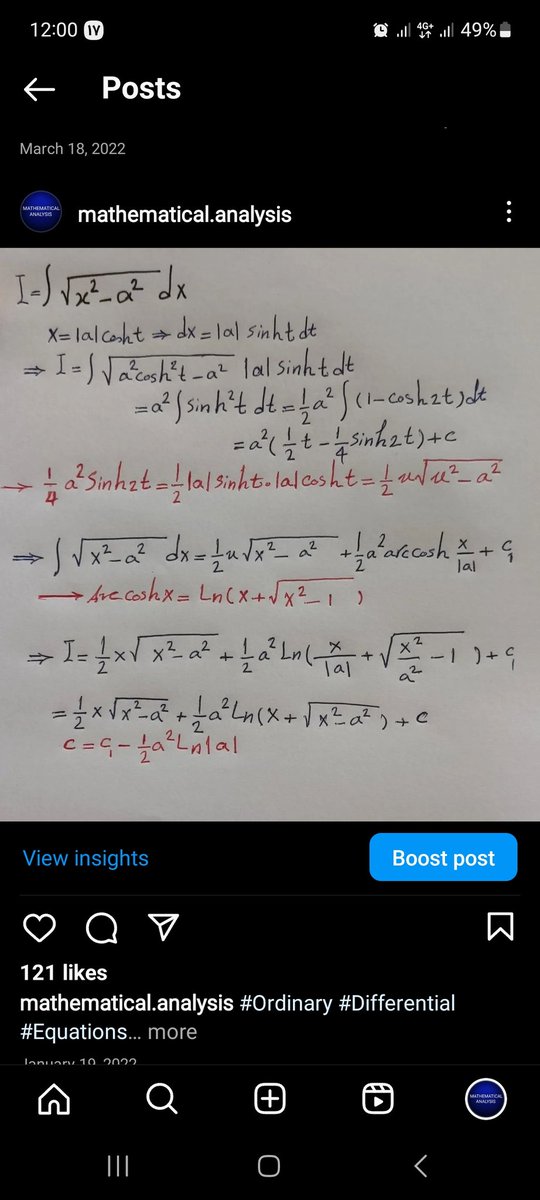 12:00
4G+
49%
Posts
March 18, 2022
MATHEMATICAL ANALYSIS
mathematical.analysis
I=∫√(x²-a²) dx
x=|a|cosht ⇒ dx=|a| sinht dt
⇒ I=∫√(a²cosh²t-a²) |a|sinht dt
=a²∫sinh²t dt=½a²∫(1-cosh2t)dt
=a²(½t-¼sinh2t)+c
→ ¼a²Sinh2t=½|a|sinht.|a|cosht=½u√(u²-a²)
⇒ ∫√(x²-a²) dx=½u√(x²-a²)+½a²arccosh x/|a| + c₁
→ Arccoshx= Ln(x+√(x²-1))
⇒ I=½x√(x²-a²)+½a²Ln(x/|a|+√(x²/a²-1))+c₁
=½x√(x²-a²)+½a²Ln(x+√(x²-a²))+c
c=c₁-½a²Ln|a|
View insights
Boost post
121 likes
mathematical.analysis #Ordinary #Differential
#Equations... more
January 19, 2022
MATHEMATICAL ANALYSIS